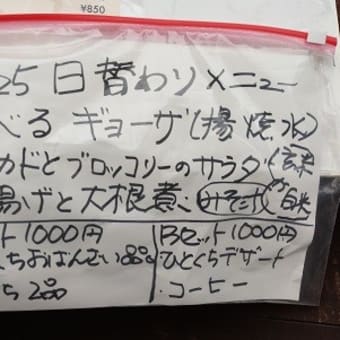 ¥850
25 日替わりメニュー
べる ギョーザ(揚 焼 水)
カドとブロッコリーのサラダ(玄米
揚げと大根煮、みそ汁 白米
ット 1000円
ちおばんざい
ち 2品
Bセット1000円
ひとくちデザート
コーヒー